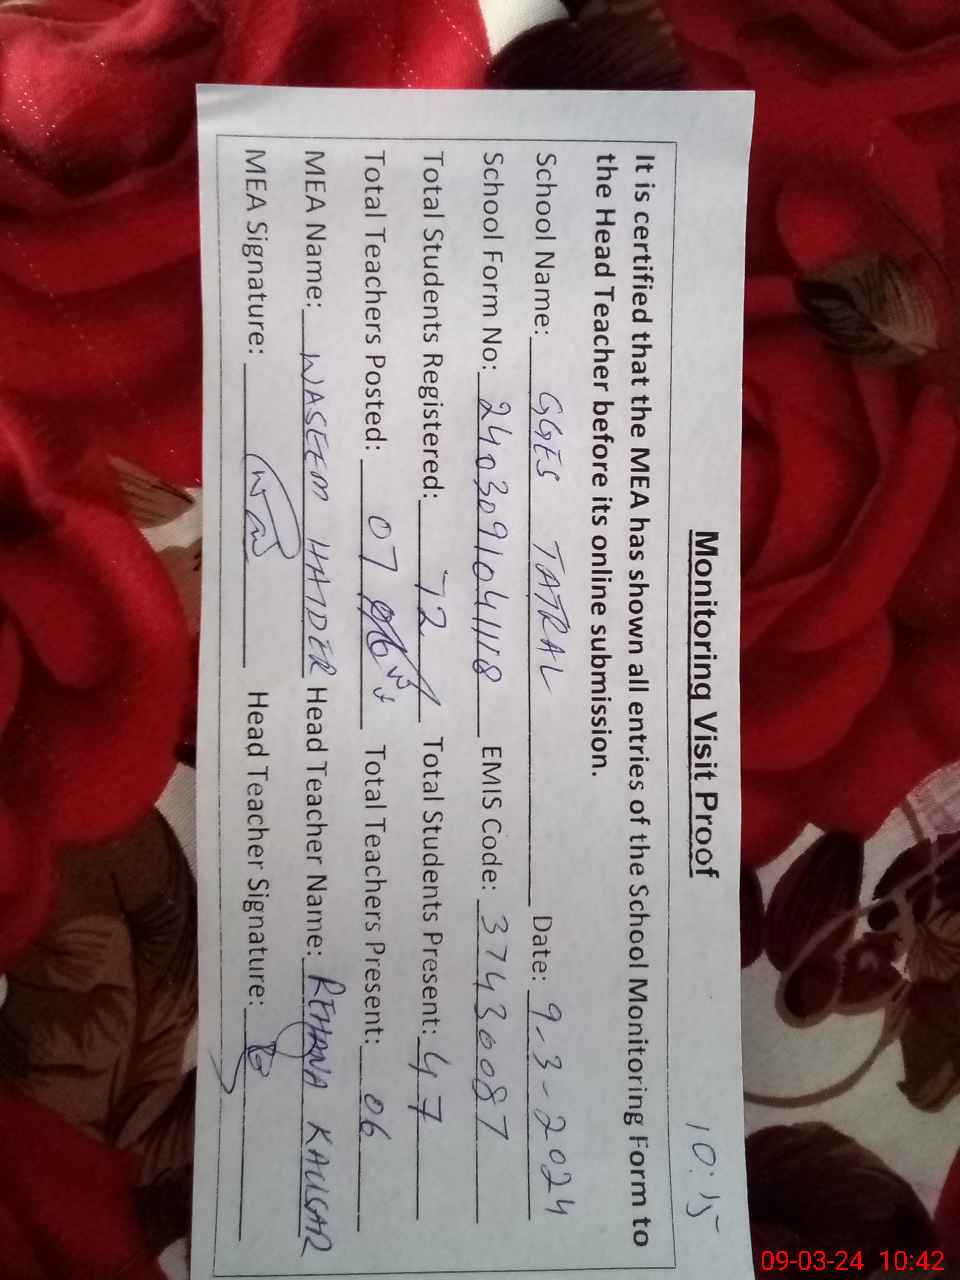 10:15
Monitoring Visit Proof
It is certified that the MEA has shown all entries of the School Monitoring Form to
the Head Teacher before its online submission.
School Name: GGES TATRAL Date: 9-3-2024
School Form No: 2403091041118 EMIS Code: 37430087
Total Students Registered: 72 Total Students Present: 47
Total Teachers Posted: 07 Total Teachers Present: 06
MEA Name: WASEEM HAIDER Head Teacher Name: REHANA KAUSAR
MEA Signature: Head Teacher Signature:
09-03-24 10:42